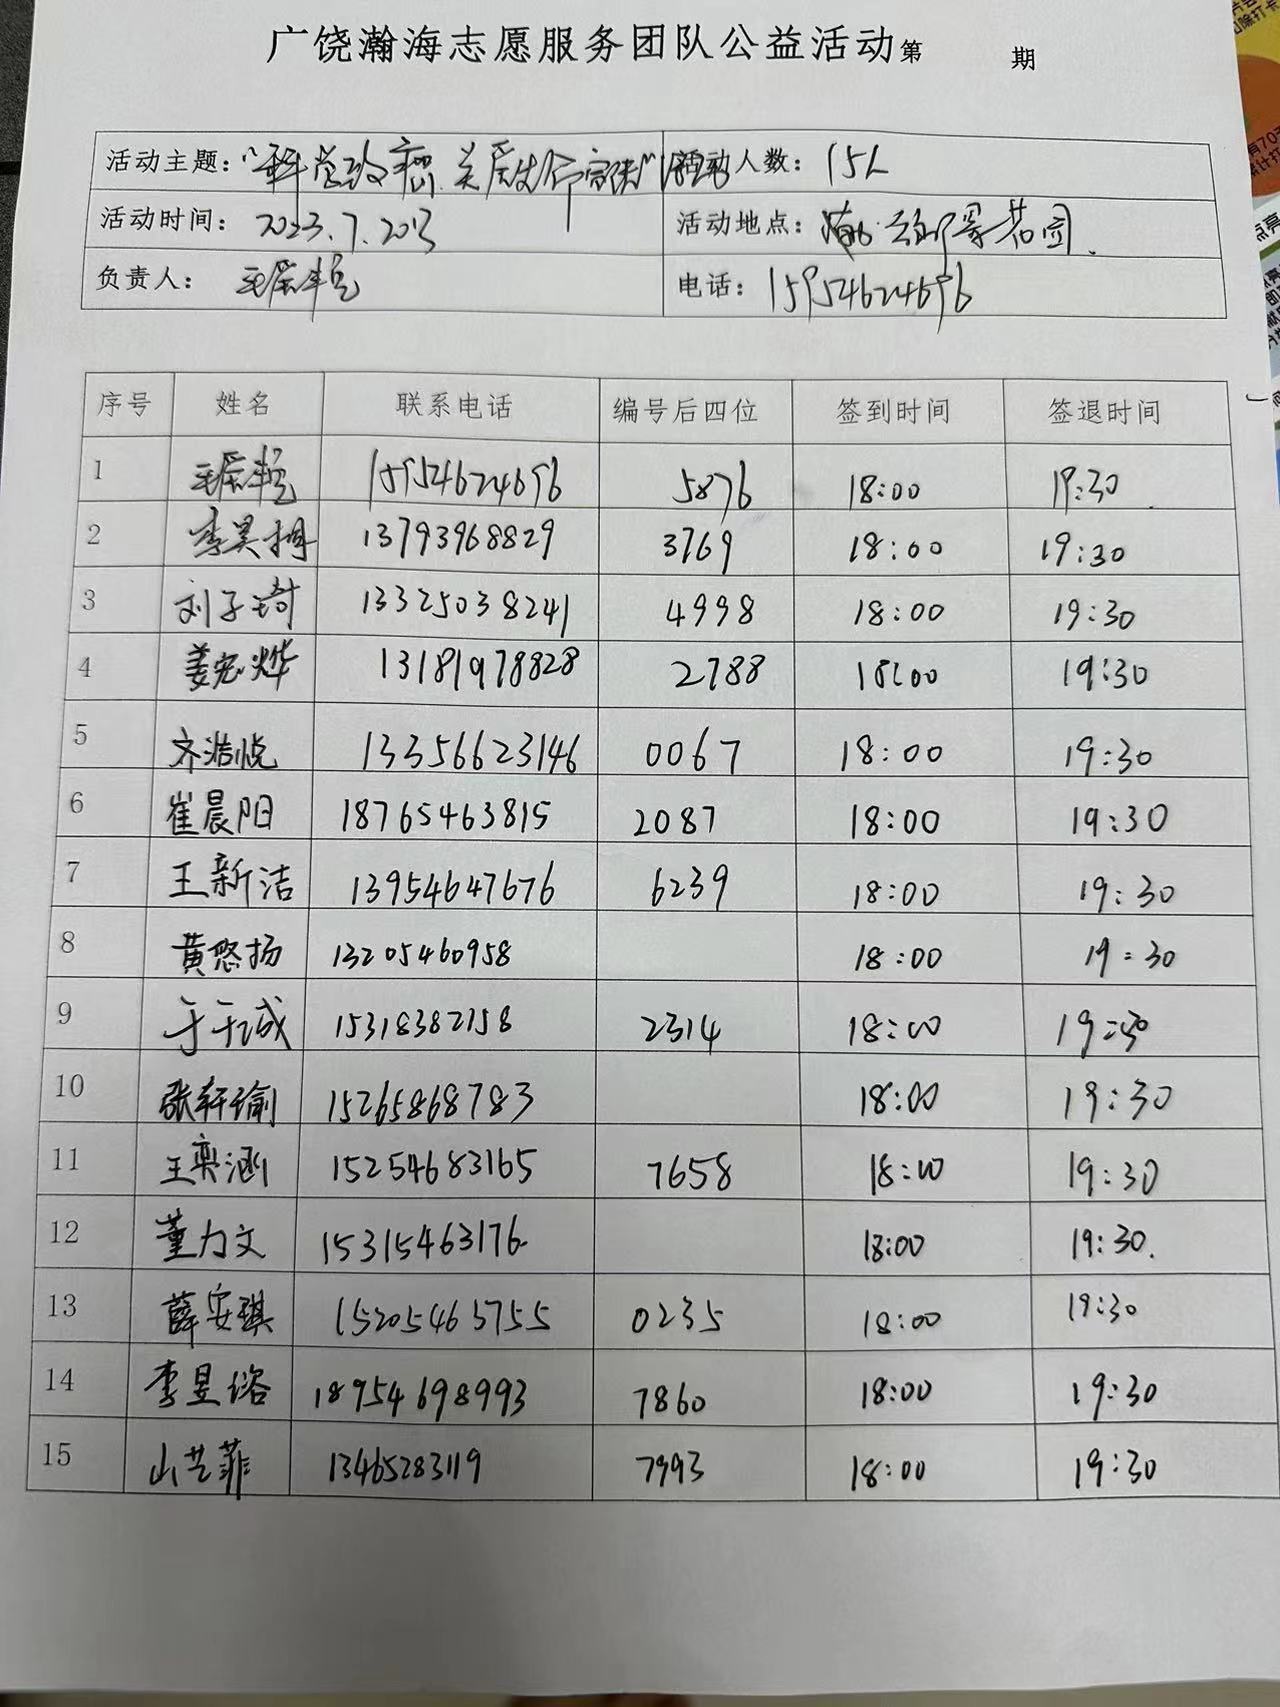 广饶瀚海志愿服务团队公益活动第 期
活动主题： 活动人数：15人
活动时间：2023.7.20日 活动地点：
负责人： 电话：15954624696
序号 姓名 联系电话 编号后四位 签到时间 签退时间
1 15954624696 5876 18:00 19:30
2 李昊 13793968829 3769 18:00 19:30
3 刘子琦 13325038241 4998 18:00 19:30
4 姜宏烨 13181978828 2788 18:00 19:30
5 齐浩悦 13356623146 0067 18:00 19:30
6 崔晨阳 18765463815 2087 18:00 19:30
7 王新洁 13954647676 6239 18:00 19:30
8 黄悠扬 13205460958 18:00 19:30
9 于千诚 15318382758 2314 18:00 19:30
10 张轩瑜 15265868783 18:00 19:30
11 王奕涵 15254683165 7658 18:00 19:30
12 董力文 15315463176. 18:00 19:30.
13 薛安琪 15205463755 0235 18:00 19:30
14 李昱 18954698993 7860 18:00 19:30
15 山艺菲 13465283119 7993 18:00 19:30